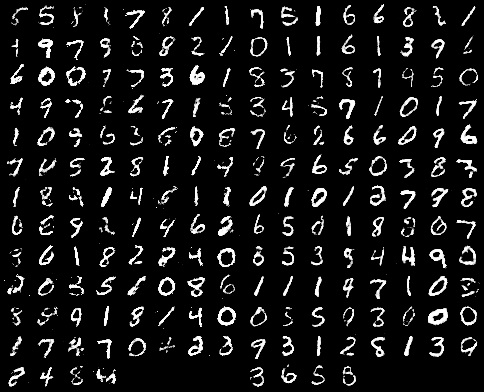 5 5 8 1 7 8 1 1 7 5 1 6 6 8 2 1
9 7 9 8 8 2 1 0 1 1 6 1 3 9
6 0 0 7 7 3 6 1 8 3 7 8 1 9 5 0
4 9 7 2 6 7 1 5 3 4 5 7 1 0 1 7
1 0 9 6 3 6 0 8 7 6 2 6 6 0 9 6
7 5 2 8 1 1 9 9 6 5 0 3 8 7
1 8 2 1 4 5 1 1 0 1 0 1 2 7 9 8
6 8 9 2 1 9 6 2 6 5 0 1 8 8 0 7
9 6 1 8 2 2 4 0 8 5 3 9 4 4 9 0
2 0 3 5 1 0 8 6 1 1 1 9 7 1 0
8 9 9 1 8 1 4 0 0 5 5 9 3 0 0 0
1 7 4 7 0 4 2 3 9 3 1 2 8 1 3 9
2 4 8 3 6 5 8